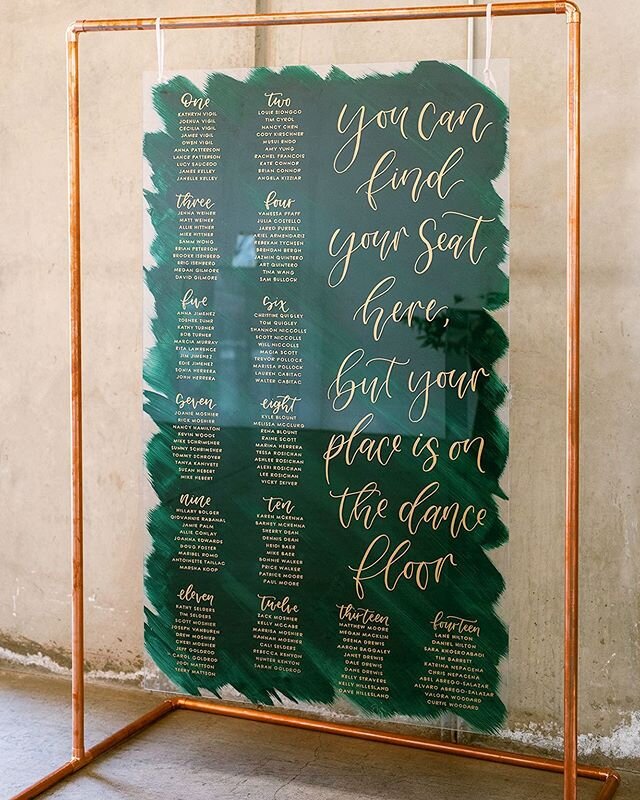 one
KATHRYN VIGIL
JOSHUA VIGIL
CECILIA VIGIL
JAMES VIGIL
OWEN VIGIL
ANNA PATTERSON
LANCE PATTERSON
LUCY SAUCEDO
JAMES KELLEY
JANELLE KELLEY
two
LOUIE SIONGCO
TIM CYROL
NANCY CHEN
CODY KIRSCHNER
MUSUI ENDO
AMY YUNG
RACHEL FRANCOIS
KATE CONNOR
BRIAN CONNOR
ANGELA KIZZIAR
three
JENNA WEINER
MATT WEINER
ALLIE HITTNER
MIKE HITTNER
SAMM WONG
BRIAN PETERSON
BROOKE ISENBERG
ERIC ISENBERG
MEGAN GILMORE
DAVID GILMORE
four
VANESSA PFAFF
JULIA COSTELLO
JARED PURSELL
ARIEL ARMENDARIZ
REBEKAH TYCHSEN
BRENDAN BERGH
JAZMIN QUINTERO
ART QUINTERO
TINA WANG
SAM BULLOCK
five
ANNA JIMENEZ
ZDENEK ZUMR
KATHY TURNER
BOB TURNER
MARCIA MURRAY
RITA LAWRENCE
JIM JIMENEZ
EDIE JIMENEZ
SONIA HERRERA
JOHN HERRERA
six
CHRISTINE QUIGLEY
TOM QUIGLEY
SHANNON NICCOLLS
SCOTT NICCOLLS
WILL NICCOLLS
MACIA SCOTT
TREVOR POLLOCK
MARISSA POLLOCK
LAUREN CABITAC
WALTER CABITAC
seven
JOANIE MOSHIER
RICK MOSHIER
NANCY HAMILTON
KEVIN WOODS
MIKE SCHRIMSHER
SUNNY SCHRIMSHER
TOMMY SCHROYER
TANYA KANIVETS
SUSAN HEBERT
MIKE HEBERT
eight
KYLE BLOUNT
MELISSA MCCLURG
RENA BLOUNT
RAINE SCOTT
MARINA HERRERA
TESSA ROSICHAN
ASHLEE ROSICHAN
ALEXI ROSICHAN
LEE ROSICHAN
VICKY SKIVER
nine
HILLARY BOLGER
GIOVANNIE RABANAL
JAMIE PALM
ALLIE CONLAY
JOANNA EDWARDS
DOUG FOSTER
MARIBEL ROMO
ANTOINETTE TAILLAC
MARSHA KOOP
ten
KAREN MCKENNA
BARNEY MCKENNA
SHERRY DEAN
DENNIS DEAN
HEIDI BAER
MIKE BAER
BONNIE WALKER
PRICE WALKER
PATRICE MOORE
PAUL MOORE
eleven
KATHY SELDERS
TIM SELDERS
SCOTT MOSHIER
JOSEPH VANBUREN
DREW MOSHIER
CHERI MOSHIER
JEFF GOLDROD
CAROL GOLDROD
JODI MATTSON
TERRY MATTSON
twelve
ZACK MOSHIER
KELLY MCCABE
MARRISA MOSHIER
HANNAH MOSHIER
CALI SELDERS
REBECCA KENYON
HUNTER KENYON
SARAH GOLDROD
you can
find
your seat
here,
but your
place is on
the dance
floor
thirteen
MATTHEW MOORE
MEGAN MACKLIN
DEENA DREWIS
AARON BAGGALEY
JANET DREWIS
DALE DREWIS
DAVE DREWIS
KELLY STRAVERS
KELLY HILLESLAND
DAVE HILLESLAND
fourteen
LANE HILTON
DANIEL HILTON
SARA KHOSROABADI
TIM BARRETT
KATRINA NEPACENA
CHRIS NEPACENA
ABEL ABREGO-SALAZAR
ALVARO ABREGO-SALAZAR
VALORA WOODARD
CURTIS WOODARD